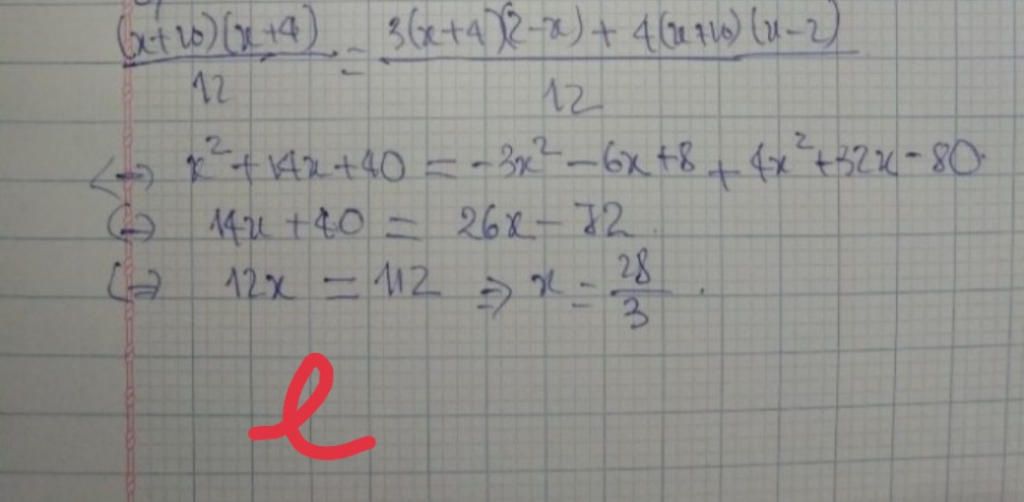 (x+10)(x+4)/12 = 3(x+4)(2-x) + 4(x+10)(x-2)/12
<=> x²+14x+40 = -3x²-6x+8 + 4x²+32x-80
<=> 14x+40 = 26x-72.
<=> 12x = 112 => x = 28/3.
l